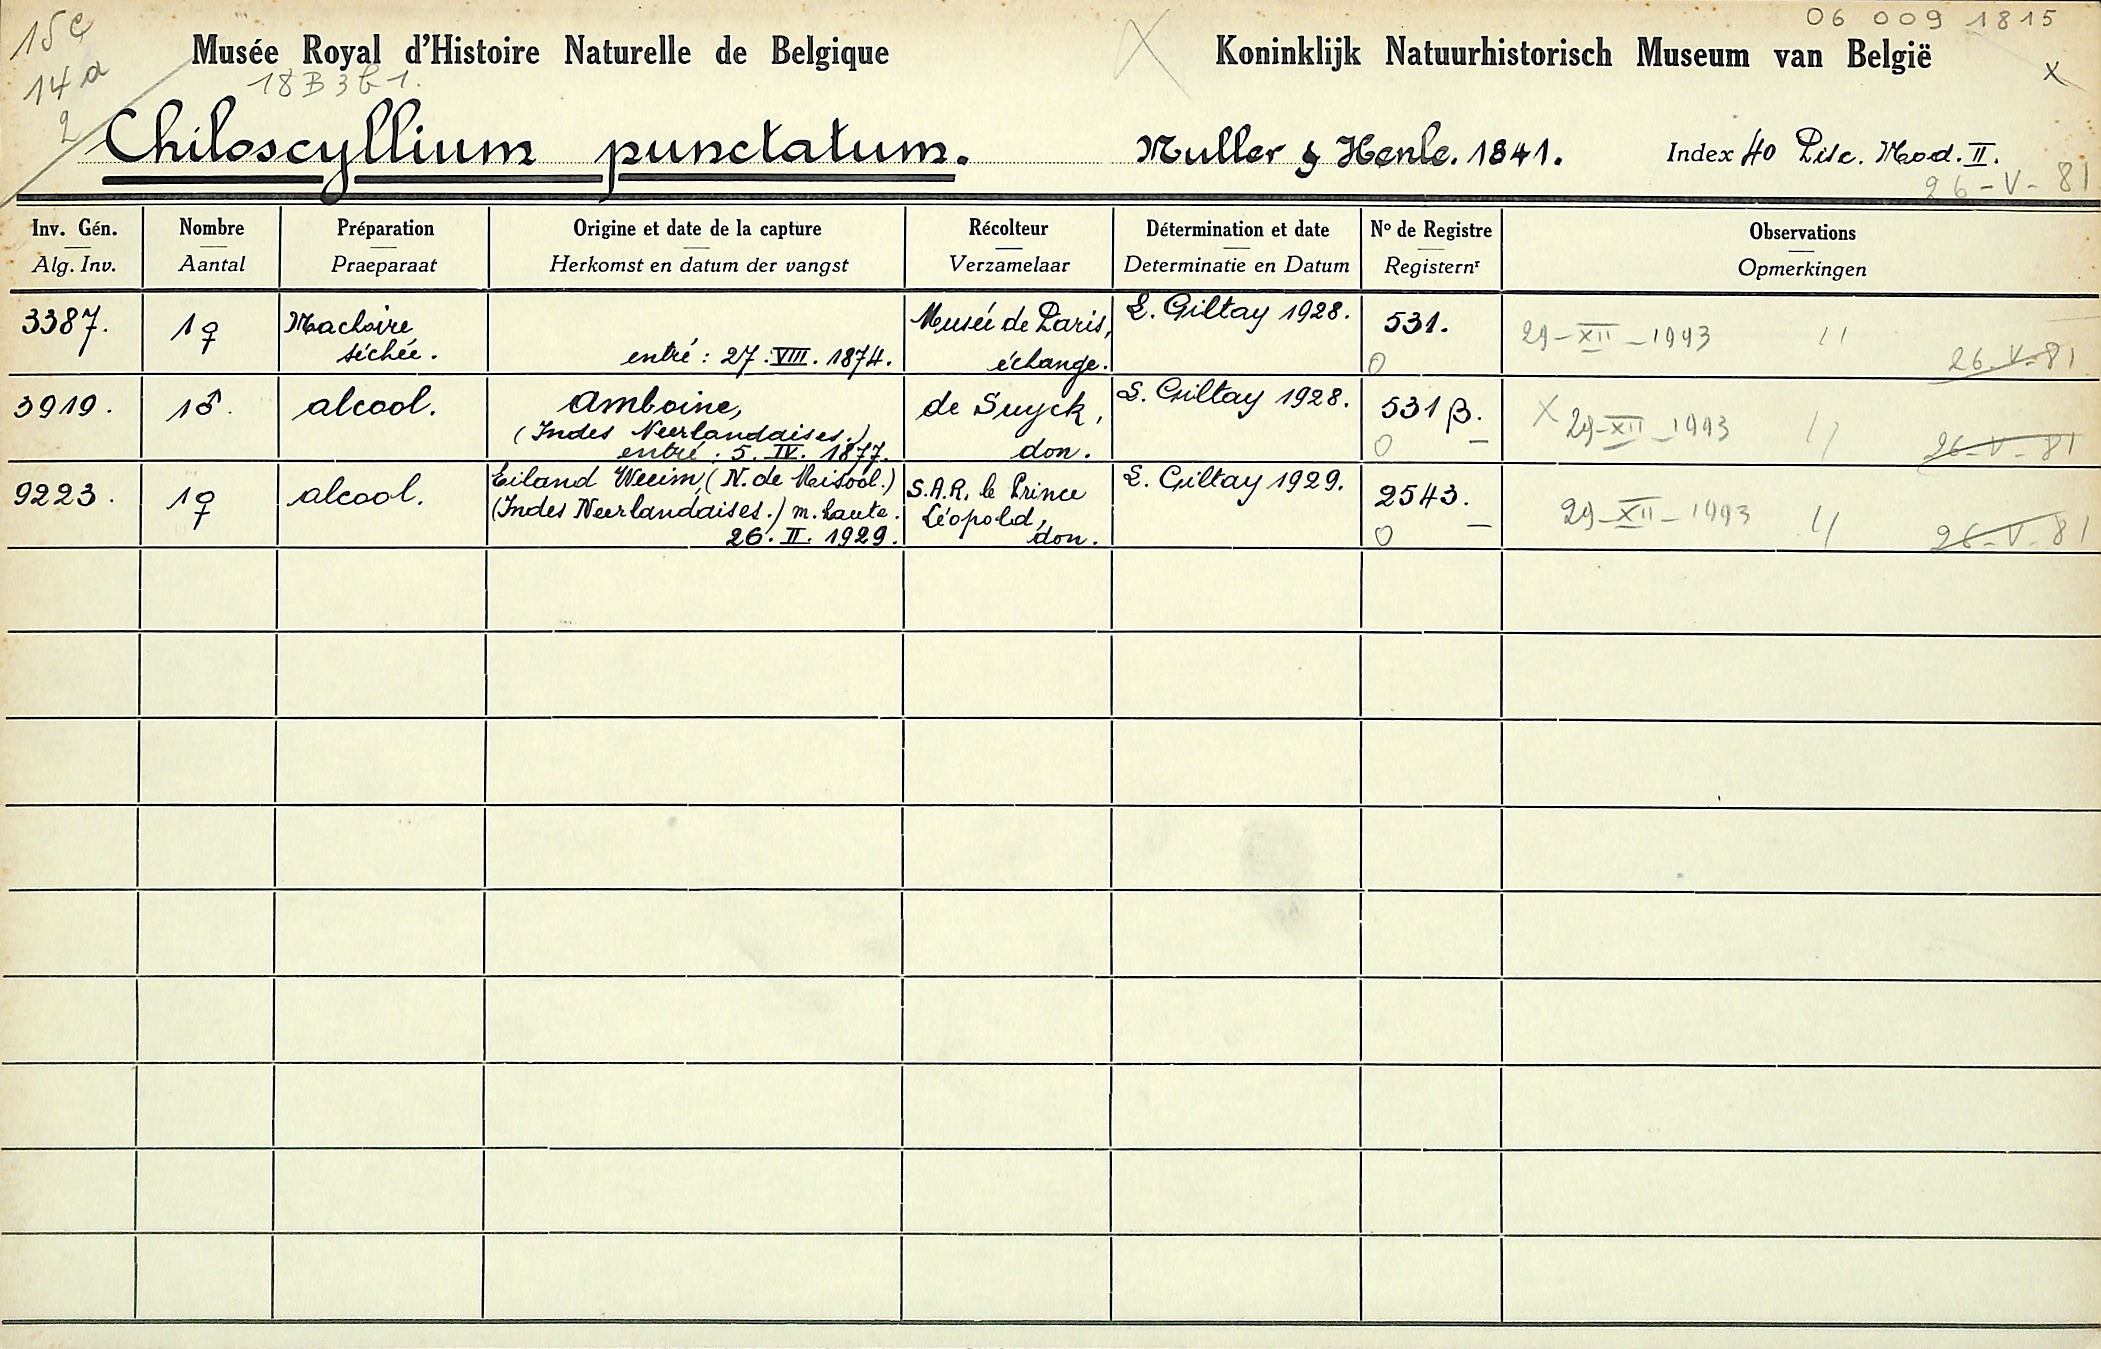 15c
06 009 1815
Musée Royal d'Histoire Naturelle de Belgique
Koninklijk Natuurhistorisch Museum van België
x
14a
18B3b1.
2
Chiloscyllium punctatum.
Muller & Henle. 1841.
Index 40 Pisc. Mod. II.
26-V-81
Inv. Gén.
Alg. Inv.
Nombre
Aantal
Préparation
Praeparaat
Origine et date de la capture
Herkomst en datum der vangst
Récolteur
Verzamelaar
Détermination et date
Determinatie en Datum
No de Registre
Registernr
Observations
Opmerkingen
3387.
1♀
Machoire
séchée.
entré : 27.VIII.1874.
Musée de Paris,
échange.
L. Giltay 1928.
531.
0
29-XII-1993 //
26.V.81
3919.
1♂.
alcool.
Amboine,
(Indes Neerlandaises.)
entré. 5. IV. 1877.
de Suyck,
don.
L. Giltay 1928.
531β.
0
x 29-XII-1993 //
26-V-81
9223.
1♀
alcool.
Eiland Weeim, (N. de Meisool.)
(Indes Neerlandaises.) m. haute.
26. II. 1929.
S.A.R. le Prince
Léopold,
don.
L. Giltay 1929.
2543.
0
29-XII-1993 //
26-V-81